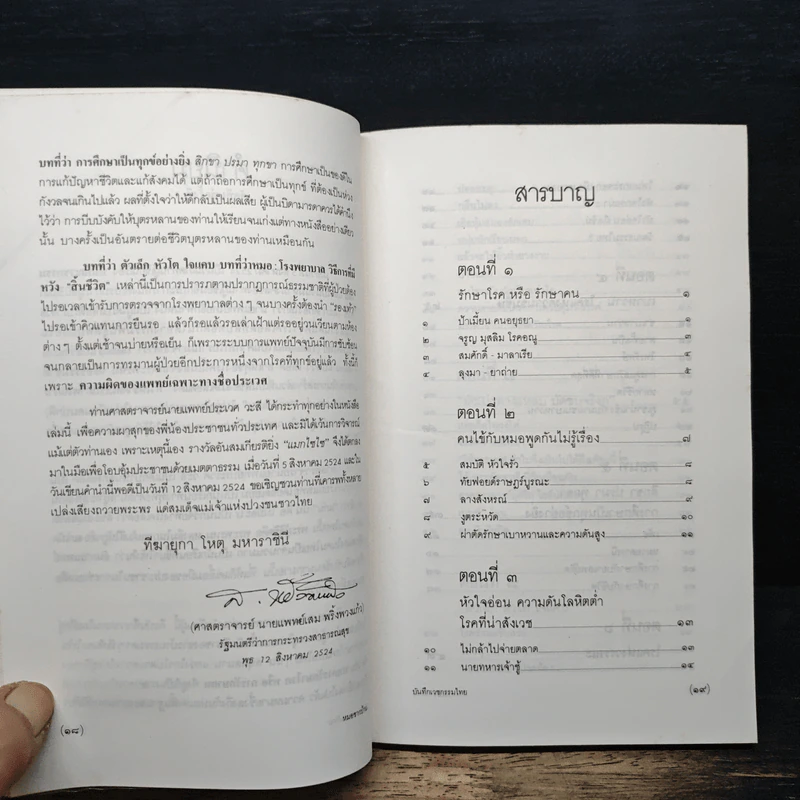 บทที่ว่า การศึกษาเป็นทุกข์อย่างยิ่ง สิกขา ปรมา ทุกขา การศึกษาเป็นของดีใน
การแก้ปัญหาชีวิตและแก้สังคมได้ แต่ถ้าถือการศึกษาเป็นทุกข์ ที่ต้องเป็นห่วง
กังวลจนเกินไปแล้ว ผลที่ตั้งใจว่าให้ดีกลับเป็นผลเสีย ผู้เป็นบิดามารดาควรได้คำนึง
ไว้ว่า การบีบบังคับให้บุตรหลานของท่านให้เรียนจนเก่งแต่ทางหนังสืออย่างเดียว
นั้น บางครั้งเป็นอันตรายต่อชีวิตบุตรหลานของท่านเหมือนกัน
บทที่ว่า ตัวเล็ก หัวโต ใจแคบ บทที่ว่าหมอ: โรงพยาบาล วิธีการที่มี
หวัง "สิ้นชีวิต" เหล่านี้เป็นการปรารภตามปรากฏการณ์ธรรมชาติที่ผู้ป่วยต้อง
ไปรอเวลาเข้ารับการตรวจจากโรงพยาบาลต่าง ๆ จนบางครั้งต้องนำ "รองเท้า"
ไปรอเข้าคิวแทนการยืนรอ แล้วก็รอแล้วรอเล่าเฝ้าแต่รออยู่วนเวียนตามห้อง
ต่าง ๆ ตั้งแต่เช้าจนบ่ายหรือเย็น ก็เพราะระบบการแพทย์ปัจจุบันมีการซับซ้อน
จนกลายเป็นการทรมานผู้ป่วยอีกประการหนึ่งจากโรคที่ทุกข์อยู่แล้ว ทั้งนี้ก็
เพราะ ความผิดของแพทย์เฉพาะทางชื่อประเวศ
ท่านศาสตราจารย์นายแพทย์ประเวศ วะสี ได้กระทำทุกอย่างในหนังสือ
เล่มนี้ เพื่อความผาสุกของพี่น้องประชาชนทั่วประเทศ และมิได้เว้นการวิจารณ์
แม้แต่ตัวท่านเอง เพราะเหตุนี้เอง รางวัลอันสมเกียรติยิ่ง "แมกไซไซ" จึงได้ตกลง
มาในมือเพื่อโอบอุ้มประชาชนด้วยเมตตาธรรม เมื่อวันที่ 5 สิงหาคม 2524 และใน
วันเขียนคำนำนี้พอดีเป็นวันที่ 12 สิงหาคม 2524 ขอเชิญชวนท่านที่เคารพทั้งหลาย
เปล่งเสียงถวายพระพร แด่สมเด็จแม่เจ้าแห่งปวงชนชาวไทย
ทีฆายุกา โหตุ มหาราชินี
(ศาสตราจารย์ นายแพทย์เสม พริ้งพวงแก้ว)
รัฐมนตรีว่าการกระทรวงสาธารณสุข
พุธ 12 สิงหาคม 2524
(๑๘)
สารบาญ
ตอนที่ ๑
รักษาโรค หรือ รักษาคน ๑
๑ ป้าเมี้ยน คนอยุธยา ๑
๒ จรูญ มุสลิม โรคอณู ๓
๓ สมศักดิ์ - มาลาเรีย ๔
๔ ลุงมา - ยาถ่าย ๕
ตอนที่ ๒
คนไข้กับหมอพูดกันไม่รู้เรื่อง ๗
๕ สมบัติ หัวใจรั่ว ๘
๖ ทัยฟอยด์ราษฎร์บูรณะ ๘
๗ ลางสังหรณ์ ๙
๘ งูตระหวัด ๑๐
๙ ผ่าตัดรักษาเบาหวานและความดันสูง ๑๑
ตอนที่ ๓
หัวใจอ่อน ความดันโลหิตต่ำ
โรคที่น่าสังเวช ๑๓
๑๐ ไม่กล้าไปจ่ายตลาด ๑๓
๑๑ นายทหารเจ้าชู้ ๑๔
บันทึกเวชกรรมไทย (๑๙)